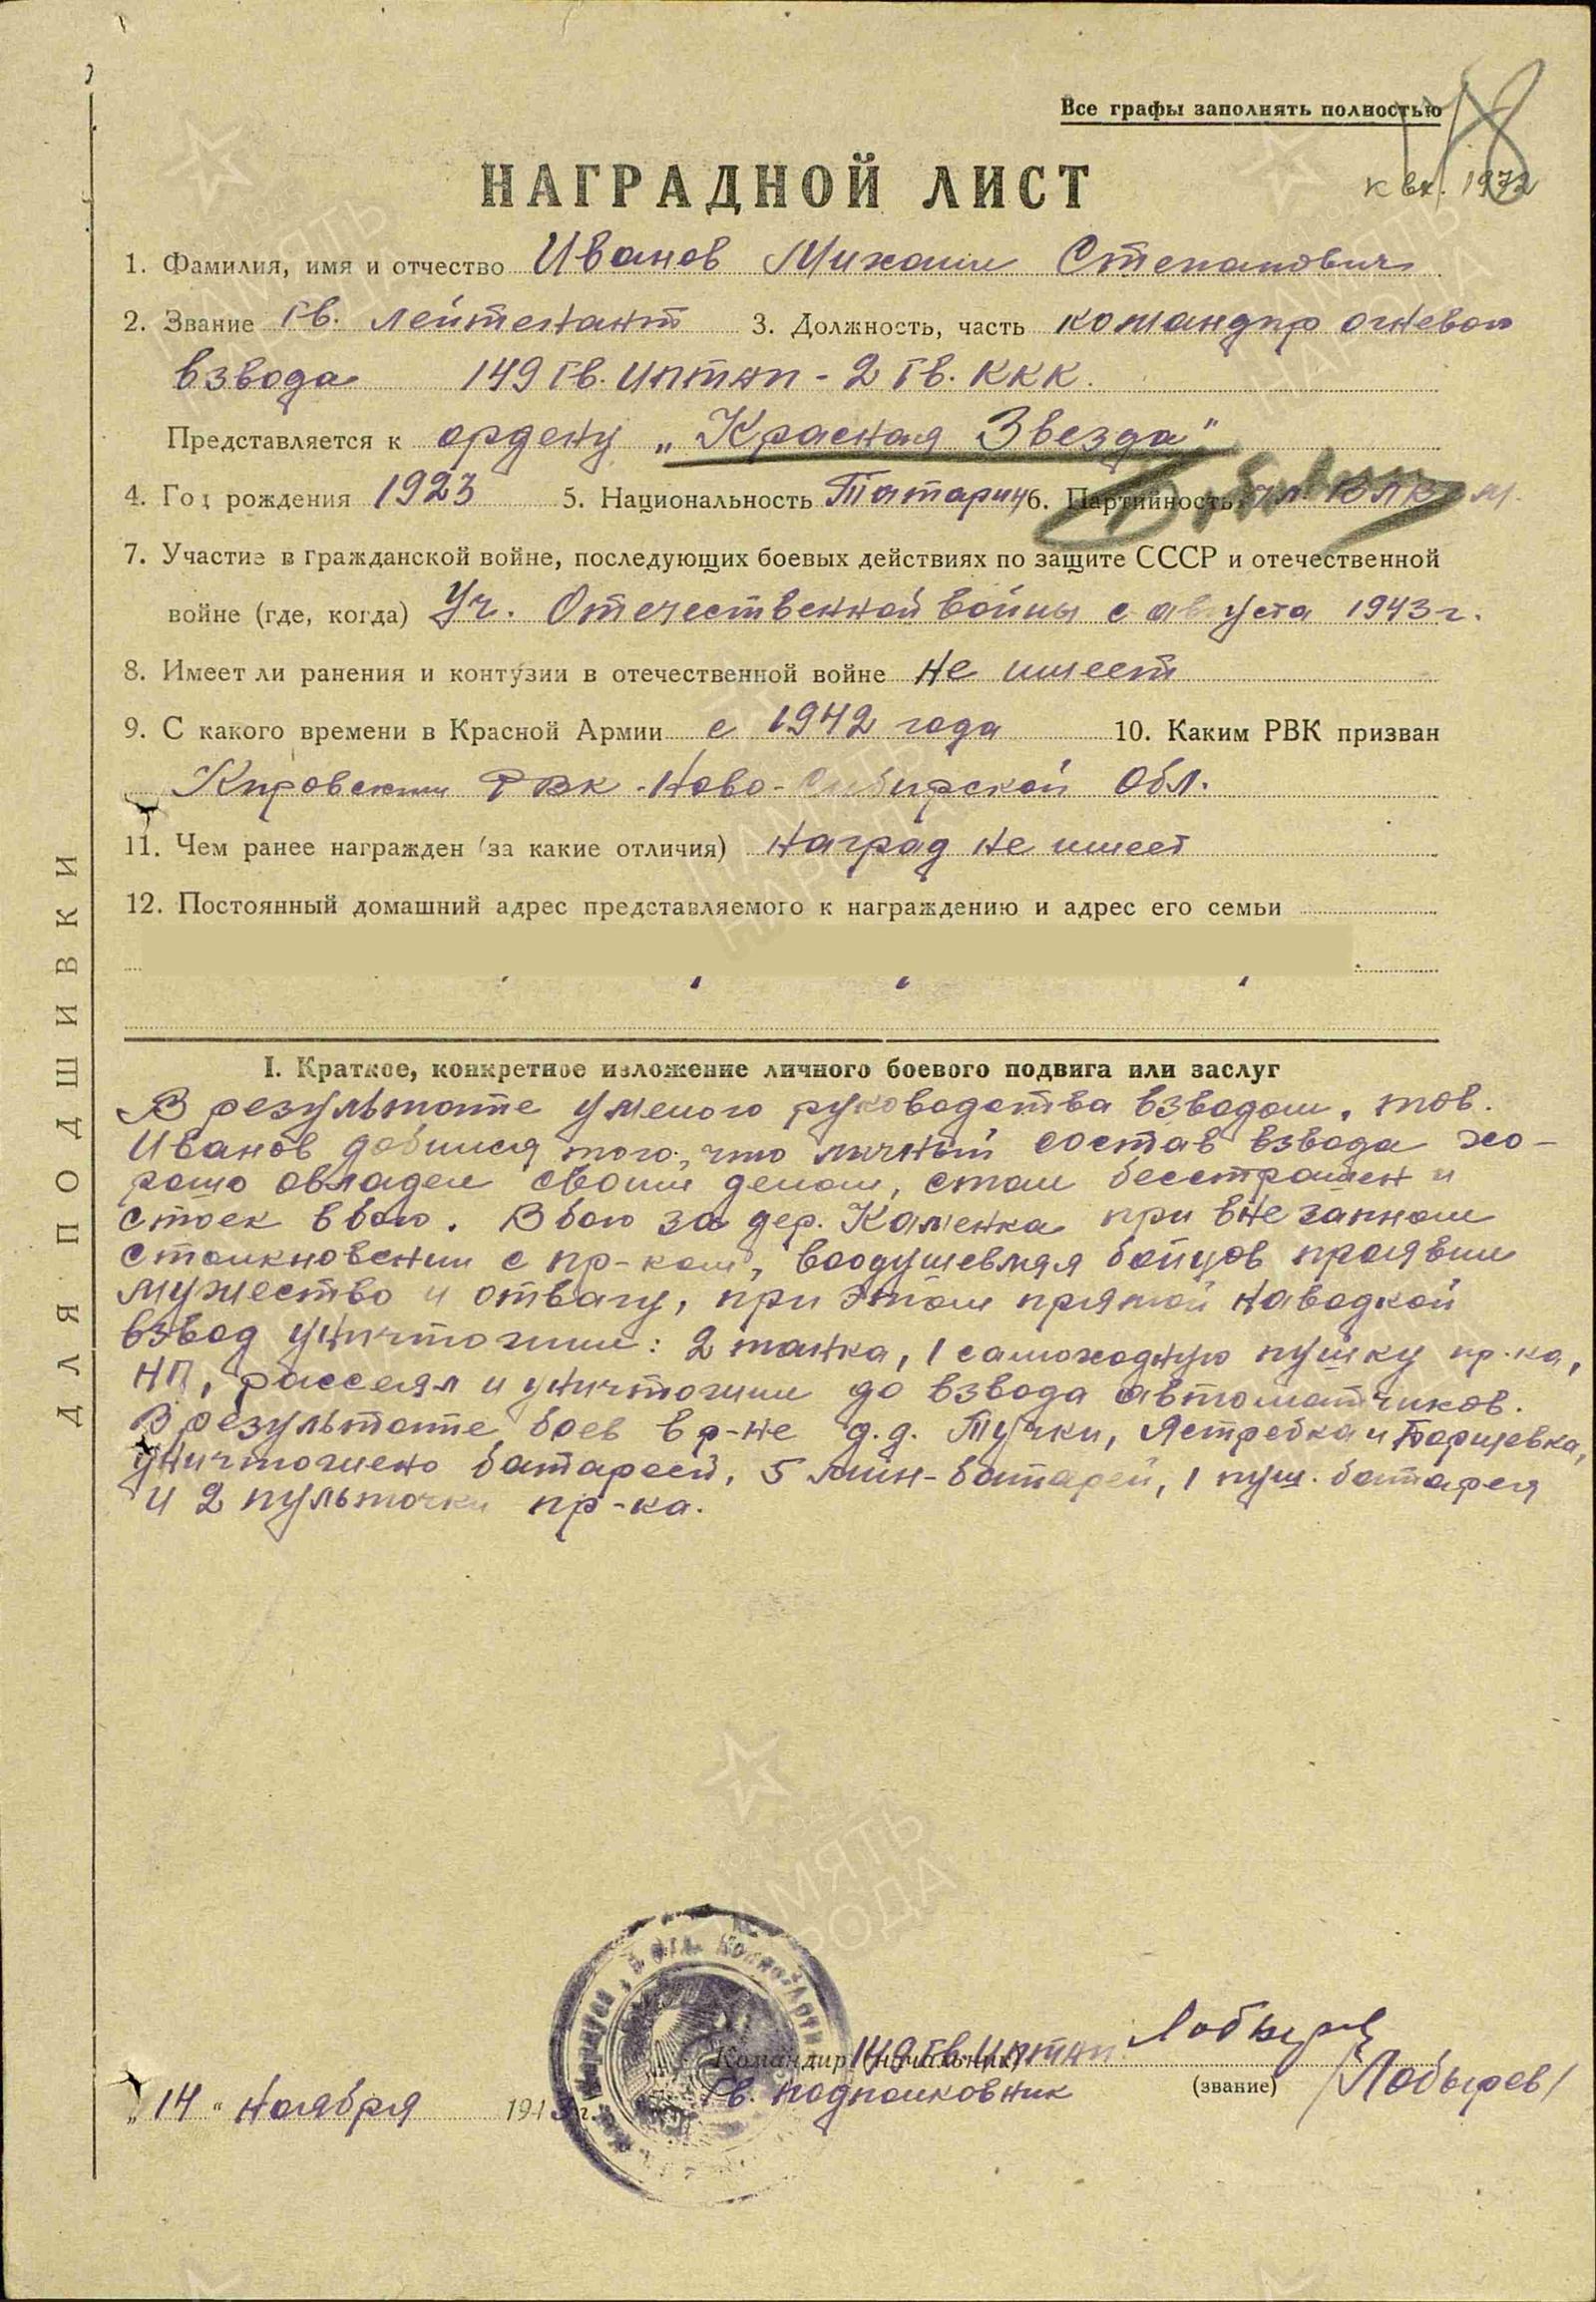 Все графы заполнять полностью
к вх. 1972
НАГРАДНОЙ ЛИСТ
1. Фамилия, имя и отчество Иванов Михаил Степанович
2. Звание гв. лейтенант 3. Должность, часть командир огневого
взвода 149 гв. иптап - 2 гв. ККК.
Представляется к ордену „Красная Звезда"
4. Год рождения 1923 5. Национальность Татарин 6. Партийность чл. ВЛКСМ.
7. Участие в гражданской войне, последующих боевых действиях по защите СССР и отечественной
войне (где, когда) Уч. Отечественной войны с августа 1943 г.
8. Имеет ли ранения и контузии в отечественной войне Не имеет
9. С какого времени в Красной Армии с 1942 года 10. Каким РВК призван
Кировским РВК Ново-Сибирской Обл.
11. Чем ранее награжден (за какие отличия) Наград не имеет
12. Постоянный домашний адрес представляемого к награждению и адрес его семьи
I. Краткое, конкретное изложение личного боевого подвига или заслуг
В результате умелого руководства взводом, тов.
Иванов добился того, что личный состав взвода хо-
рошо овладел своим делом, стал бесстрашен и
стоек в бою. В бою за дер. Каменка при внезапном
столкновении с пр-ком, воодушевляя бойцов проявил
мужество и отвагу, при этом прямой наводкой
взвод уничтожил: 2 танка, 1 самоходную пушку пр-ка,
НП, рассеял и уничтожил до взвода автоматчиков.
В результате боев в р-не д.д. Тучки, Ястребка и Борщевка,
уничтожено батареей, 5 мин-батарей, 1 пуш. батарея
и 2 пульточки пр-ка.
Командир (начальник) 149 гв. иптап Лобырев
гв. подполковник (звание) /Лобырев/
„14" Ноября 1943 г.
ДЛЯ ПОДШИВКИ
ПАМЯТЬ
НАРОДА